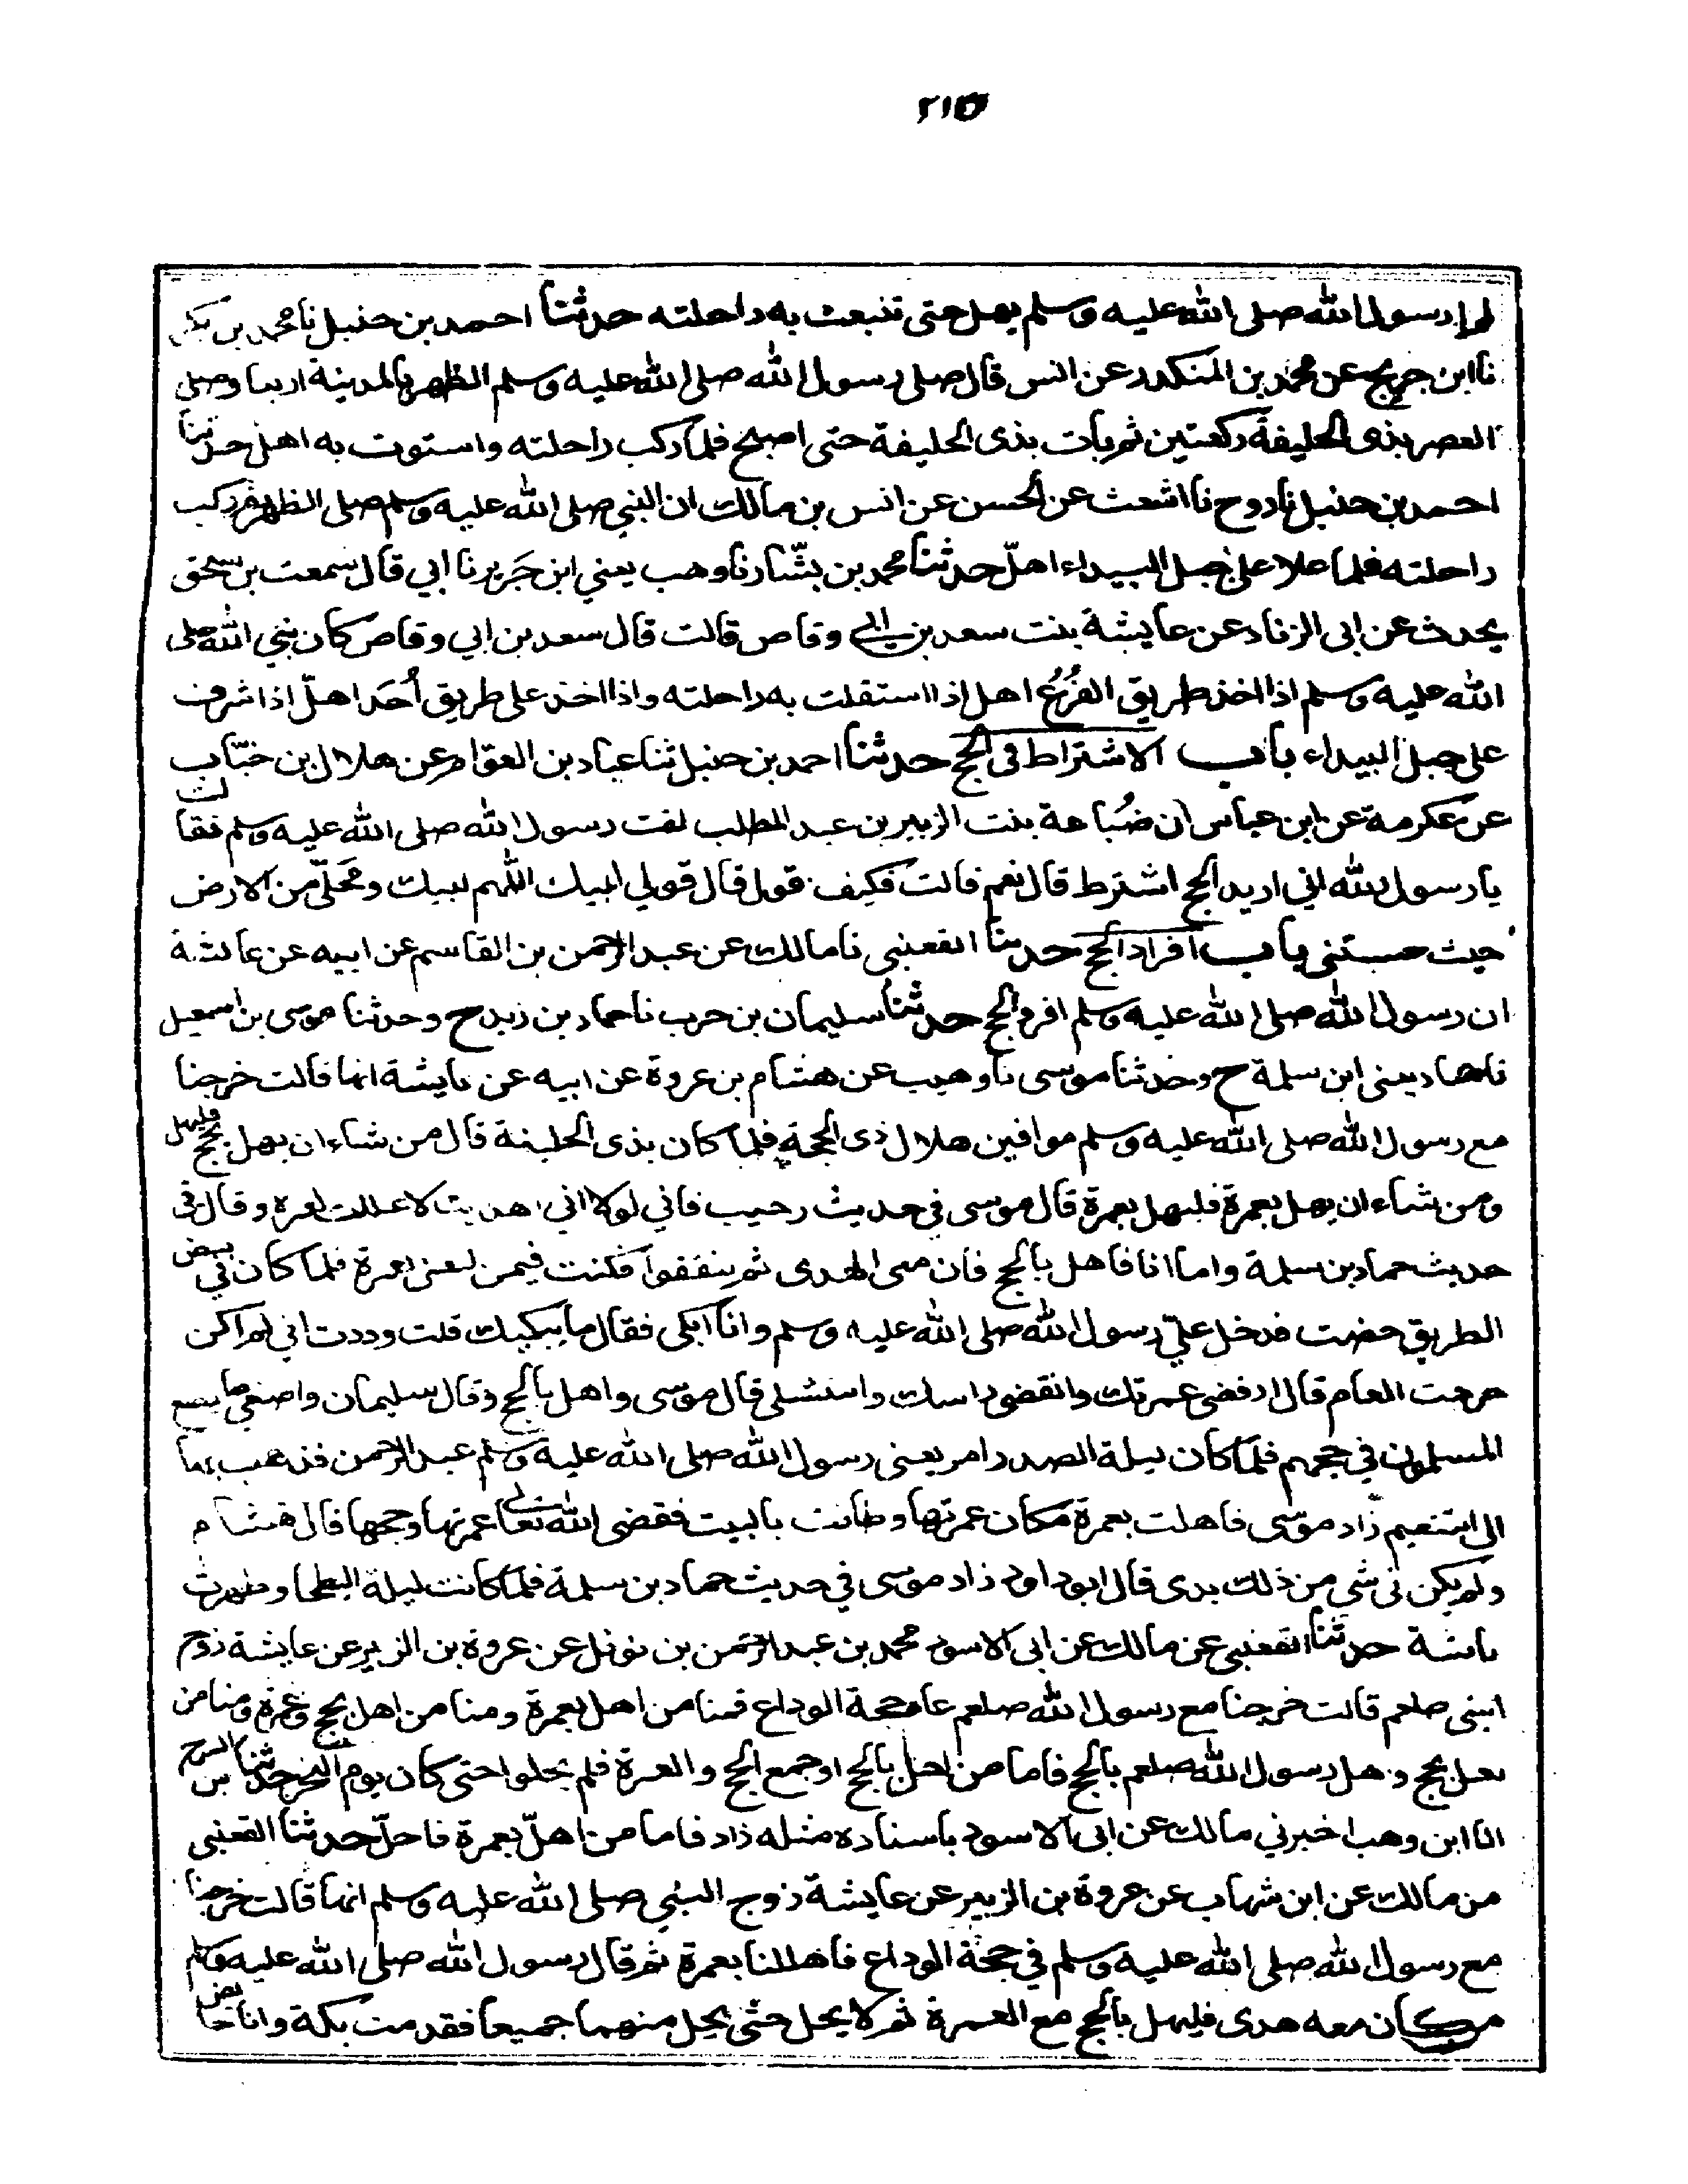 ٢١٥
لم ار رسول الله صلى الله عليه وسلم يهل حتى تنبعث به راحلته حدثنا احمد بن حنبل نا محمد بن بكر
نا ابن جريج عن محمد بن المنكدر عن انس قال صلى رسول الله صلى الله عليه وسلم الظهر بالمدينة اربعا وصلى
العصر بذى الحليفة ركعتين ثم بات بذى الحليفة حتى اصبح فلما ركب راحلته واستوت به اهل حدثنا
احمد بن حنبل نا روح نا اشعث عن الحسن عن انس بن مالك ان النبي صلى الله عليه وسلم صلى الظهر ثم ركب
راحلته فلما علا على جبل البيداء اهلّ حدثنا محمد بن بشّار نا وهب يعني ابن جَرير نا ابي قال سمعت بن اسحق
يحدث عن ابى الزناد عن عايشة بنت سعد بن ابي وقاص قالت قال سعد بن ابي وقاص كان نبي الله صلى
الله عليه وسلم اذا اخذ طريق الفُرُع اهل اذا استقلت به راحلته واذا اخذ على طريق أُحَد اهلّ اذا اشرف
على جبل البيداء باب الاشتراط فى الحج حدثنا احمد بن حنبل ثنا عباد بن العوّام عن هلال بن خبّاب
عن عكرمة عن ابن عباس ان ضُباعة بنت الزبير بن عبد المطلب اتت رسول الله صلى الله عليه وسلم فقالت
يا رسول الله اني اريد الحج اشترط قال نعم قالت فكيف اقول قال قولي لبيك اللهم لبيك ومَحلّي من الارض
حيث حبستنى باب افراد الحج حدثنا القعنبى نا مالك عن عبد الرحمن بن القاسم عن ابيه عن عائشة
ان رسول الله صلى الله عليه وسلم افرد الحج حدثنا سليمان بن حرب نا حماد بن زيد ح وحدثنا موسى بن اسمعيل
نا حماد يعنى ابن سلمة ح وحدثنا موسى نا وهيب عن هشام بن عروة عن ابيه عن عايشة انها قالت خرجنا
مع رسول الله صلى الله عليه وسلم موافين هلال ذى الحجة فلما كان بذى الحليفة قال من شاء ان يهل بحج فليهل
ومن شاء ان يهل بعمرة فليهل بعمرة قال موسى في حديث وهيب فاني لولا اني اهديت لاهللت بعمرة وقال في
حديث حماد بن سلمة واما انا فاهل بالحج فان معى الهدى ثم يتفقوا فكنت فيمن اهل بعمرة فلما كان في بعض
الطريق حضت فدخل عليّ رسول الله صلى الله عليه وسلم وانا ابكى فقال ما يبكيك قلت وددت اني لم اكن
خرجت العام قال ارفضى عمرتك وانقضى راسك وامتشطى قال موسى واهل بالحج وقال سليمان واصنعي ما يصنع
المسلمون في حجهم فلما كان ليلة الصدر امر يعنى رسول الله صلى الله عليه وسلم عبد الرحمن فذهب بها
الى التنعيم زاد موسى فاهلت بعمرة مكان عمرتها وطافت بالبيت فقضى الله تعالى عمرتها وحجها قال هشام
ولم يكن فى شى من ذلك هدى قال ابو داود زاد موسى في حديث حماد بن سلمة فلما كانت ليلة البطحا وطهرت
عايشة حدثنا القعنبى عن مالك عن ابى الاسود محمد بن عبد الرحمن بن نوفل عن عروة بن الزبير عن عايشة زوج
النبى صلعم قالت خرجنا مع رسول الله صلعم عام حجة الوداع فمنا من اهل بعمرة ومنا من اهل بحج وعمرة ومنا من
اهل بحج واهل رسول الله صلعم بالحج فاما من اهل بالحج او جمع الحج والعمرة فلم يحلوا حتى كان يوم النحر حدثنا بن السرح
انا ابن وهب اخبرني مالك عن ابى الاسود باسناده مثله زاد فاما من اهلّ بعمرة فاحلّ حدثنا القعنبى
عن مالك عن ابن شهاب عن عروة بن الزبير عن عايشة زوج النبي صلى الله عليه وسلم انها قالت خرجنا
مع رسول الله صلى الله عليه وسلم في حجة الوداع فاهللنا بعمرة ثم قال رسول الله صلى الله عليه وسلم
من كان معه هدى فليهل بالحج مع العمرة ثم لا يحل حتى يحل منهما جميعا فقدمت بكة وانا حائض